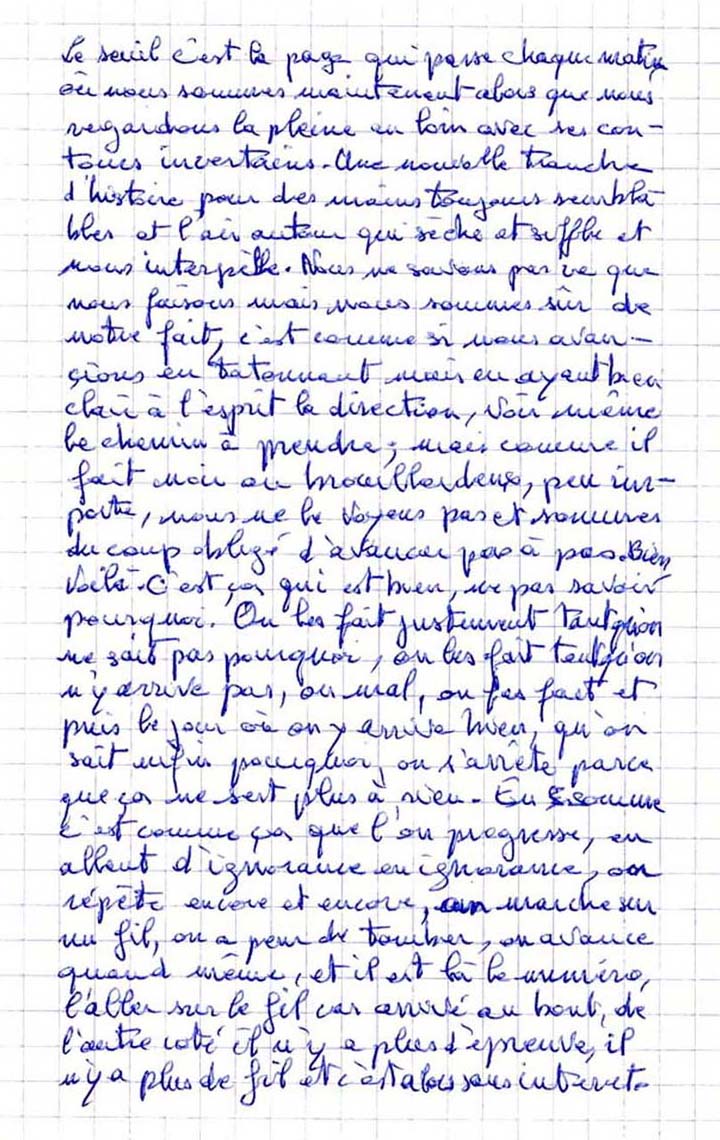 Le seuil c'est la page qui passe chaque matin
où nous sommes maintenant alors que nous
regardons la pleine au loin avec ses con-
tours incertains. Une nouvelle tranche
d'histoire pour des mains toujours sembla
bles et l'air autour qui sèche et siffle et
nous interpelle. Nous ne savons pas ce que
nous faisons mais nous sommes sûr de
notre fait, c'est comme si nous avan-
cions en tatonnant mais en ayant bien
clair à l'esprit la direction, voir même
le chemin à prendre; mais comme il
fait noir ou brouillardeux, peu im-
porte, nous ne le voyons pas et sommes
du coup obligé d'avancer pas à pas. Bien
voilà. C'est ça qui est bien, ne pas savoir
pourquoi. On les fait justement tant qu'on
ne sait pas pourquoi, on les fait tant qu'on
n'y arrive pas, ou mal, on les fait et
puis le jour où on y arrive bien, qu'on
sait enfin pourquoi, on s'arrête parce
que ça ne sert plus à rien. En somme
c'est comme ça que l'on progresse, en
allant d'ignorance en ignorance, on
répète encore et encore, on marche sur
un fil, on a peur de tomber, on avance
quand même, et il est là le numéro,
l'aller sur le fil car arrivé au bout, de
l'autre coté il n'y a plus d'épreuve, il
n'y a plus de fil et c'est alors sans interet.